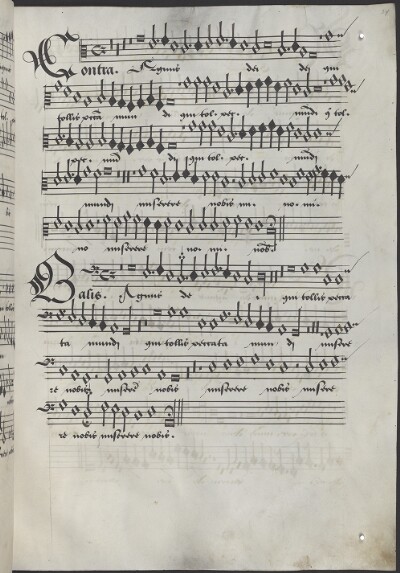 Contra. Agnus dei dei qui
tollis pcta mun di qui tol. pec. mūdi q tol.
pec. mūd di qui tol. pec. mūdi
mundi miserere nobis mi. no. mi.
no miserere no. mi. nob.
Basis. Agnus de i qui tollis pecca
ta mundi qui tollis peccata mun di misere
re nobis misere nobis miserere nobis misere
re nobis miserere nobis.